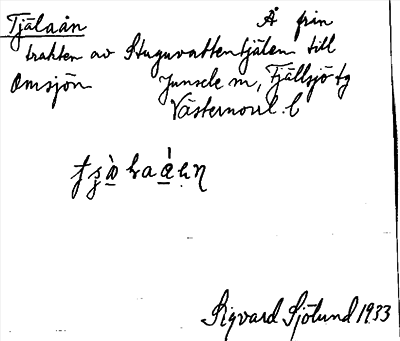 Tjälaån Å från
trakten av Stuguvattentjälen till
Omsjön Junsele sn, Fjällsjö tg
Västernorrl. l
Sigvard Sjölund 1933